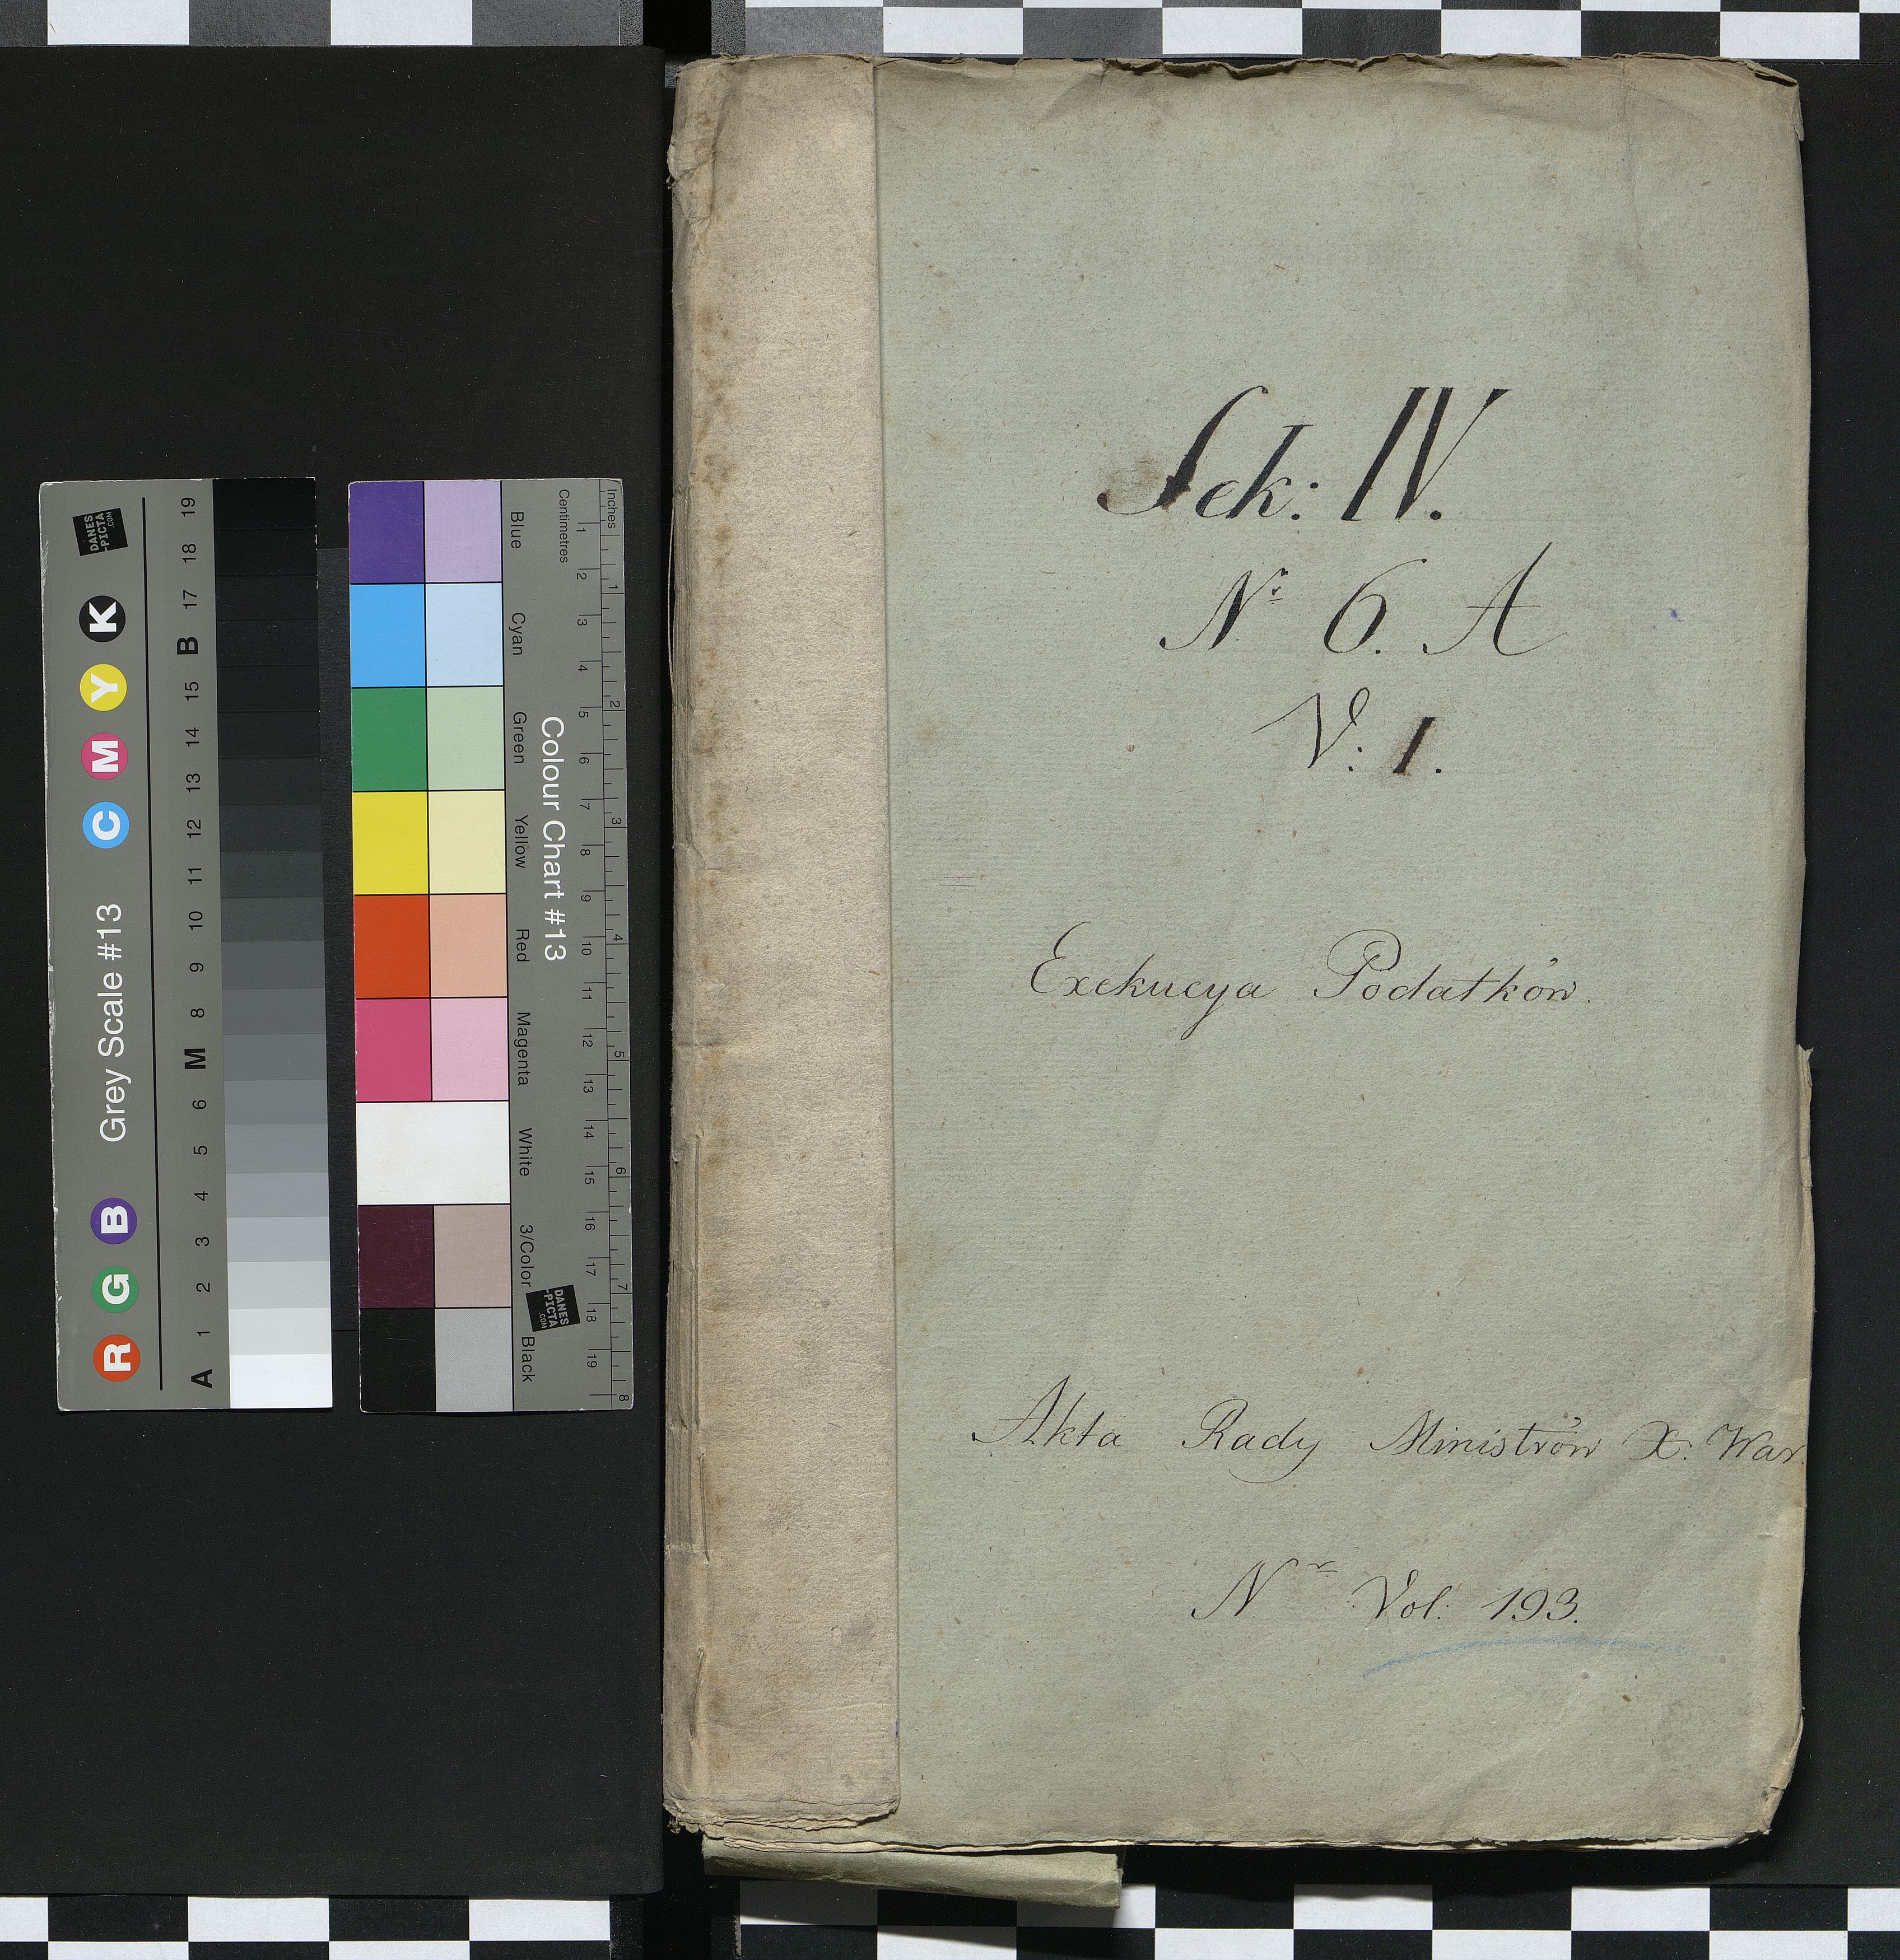 Sek: IV.
Nr 6. A
V: 1.
Exekucya Podatków.
Akta Rady Ministrów X: War.
Nr Vol: 193.
Grey Scale #13
R G B C M Y K
A 1 2 3 4 5 6 M 8 9 10 11 12 13 14 15 B 17 18 19
DANES
-PICTA
.COM
Colour Chart #13
Blue Cyan Green Yellow Red Magenta White 3/Color Black
Centimetres 1 2 3 4 5 6 7 8 9 10 11 12 13 14 15 16 17 18 19
Inches 1 2 3 4 5 6 7 8
DANES
-PICTA
.COM